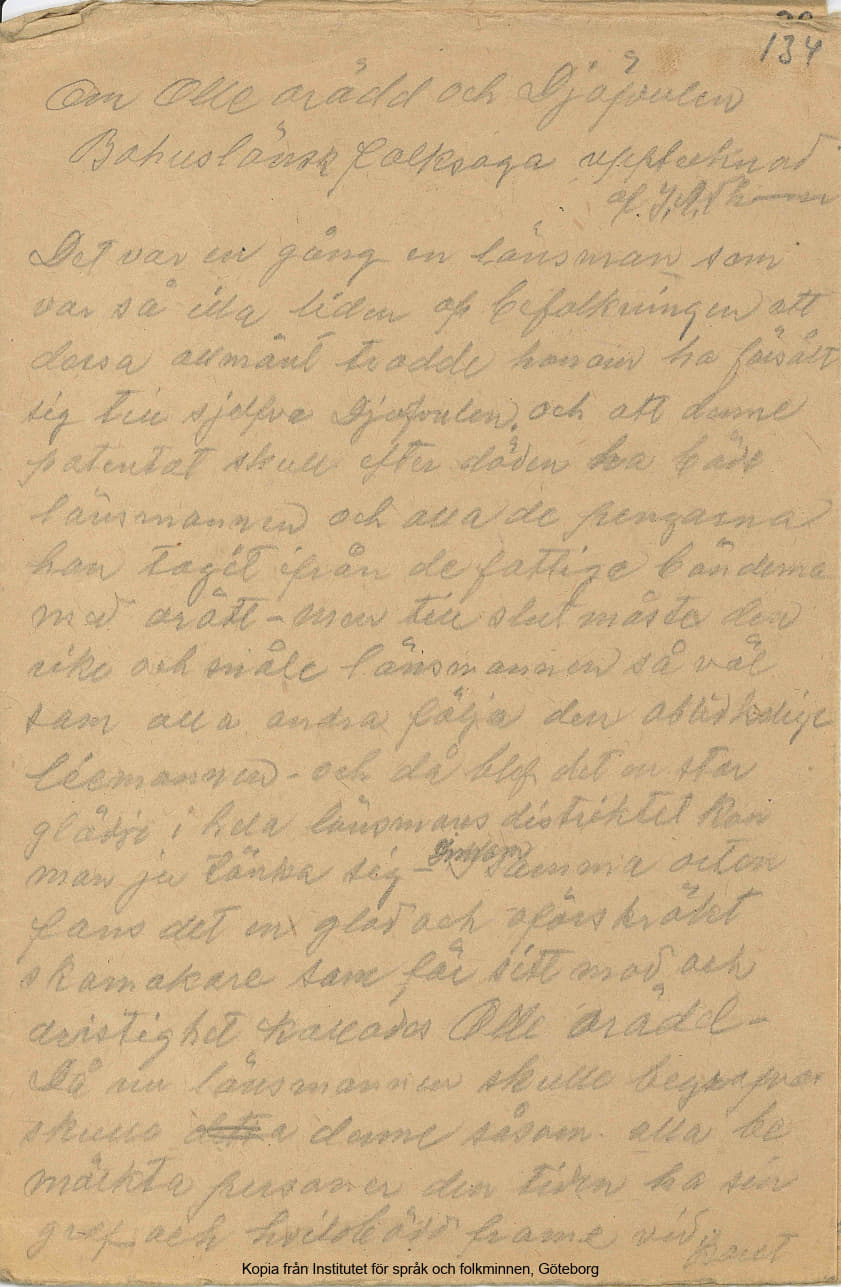 134
Om Olle orädd och Djöfvulen
Bohuslänsk folksaga upptecknad
af
Det var en gång en länsman som
var så illa liden af befolkningen att
dessa allmänt trodde honom ha försålt
sig till sjelfva Djöfvulen, och att denne
potentat skulle efter döden ha både
länsmannen och alla de pengarna
han tagit ifrån de fattige bönderna
med orätt - men till slut måste den
rike och snåle länsmannen så väl
som alla andra följa den obevedlige
liemannen - och då blef det en stor
glädje i hela länsmansdistriktet kan
man ju tänka sig - Inom samma orten
fans det en glad och oförskräckt
skomakare som för sitt mod och
dristighet kallades Olle orädd -
Då nu länsmannen skulle begrafvas
skulle denne såsom alla be
märkta personer den tiden ha sin
graf och hvilobädd framme vid
Koret
Kopia från Institutet för språk och folkminnen, Göteborg